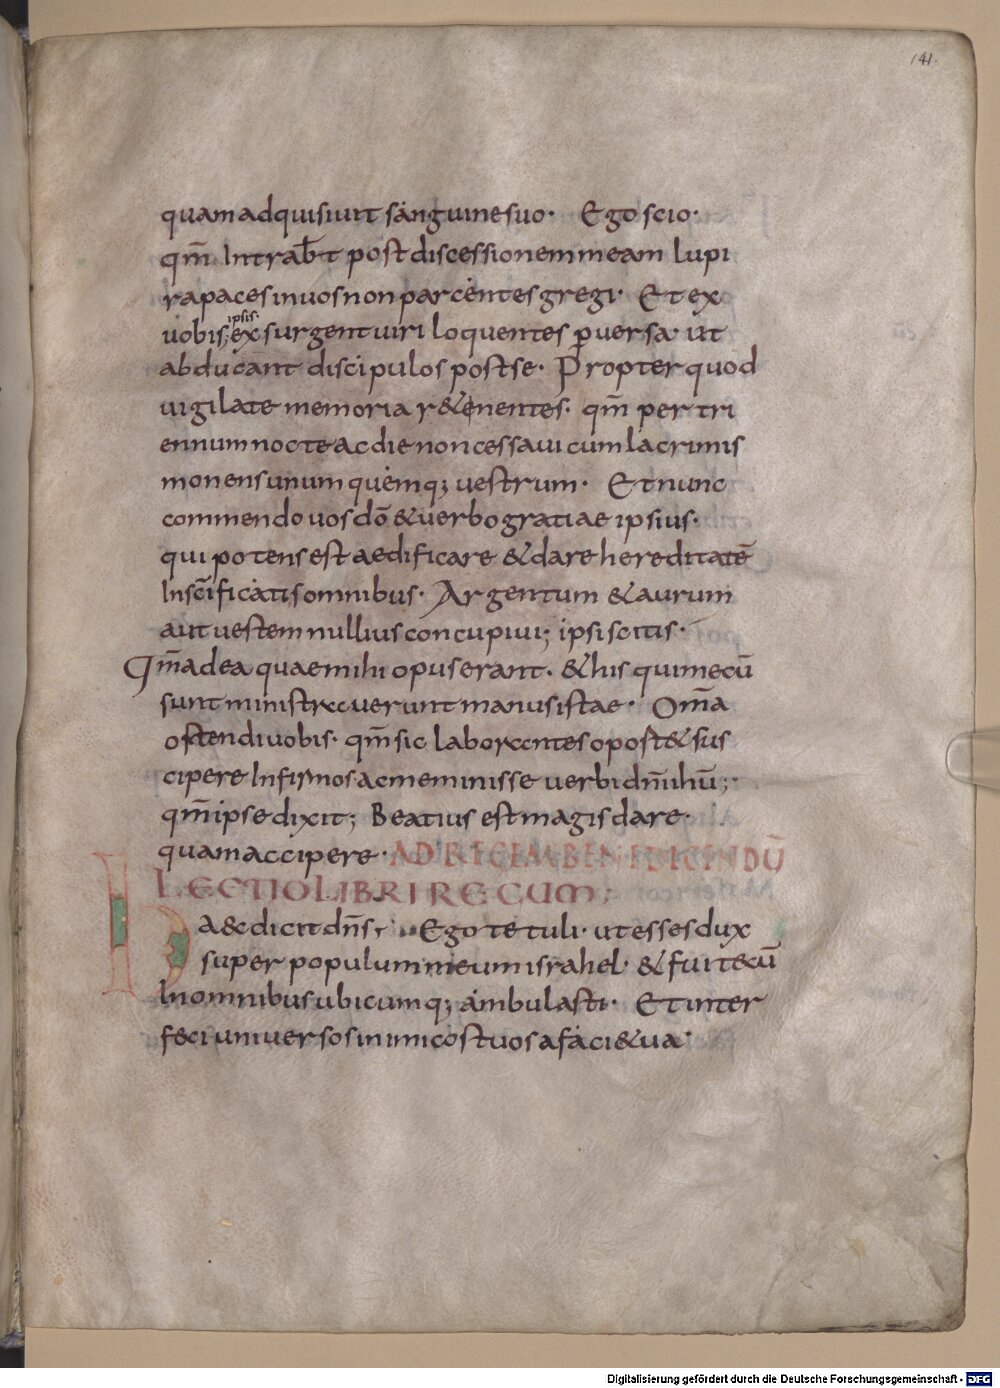 141.
quam adquisiuit sanguine suo· Ego scio·
qm̅ Intrab̅t post discessionem meam lupi
rapaces in uos non parcentes gregi· Et ex
uobis ipsis· exsurgent uiri loquentes ꝑuersa· ut
abducant discipulos post se· Propter quod
uigilate memoria r&enentes· qm̅ per tri
ennum nocte ac die non cessaui cum lacrimis
monens unum quemq; uestrum· Et nunc
commendo uos dō & uerbo gratiae ipsius·
qui potens est aedificare & dare hereditatē
In sc̄ificatis omnibus· Argentum & aurum
aut uestem nullius concupiui; ipsi scitis·
Qm̅ ad ea quae mihi opus erant· & his qui mecū
sunt ministrauerunt manus istae· Om̅a
ostendi uobis· qm̅ sic laborantes oport& sus
cipere Infirmos ac meminisse uerbi dn̅i ihū;
qm̅ ipse dixit; Beatius est magis dare·
quam accipere· AD REGEM BENEDICENDŪ
LECTIO LIBRI REGUM;
Haec dicit dn̅s· Ego te tuli· ut esses dux
super populum meum israhel· & fui tecū
In omnibus ubicumq; ambulasti· Et inter
feci uniuersos inimicos tuos a faci& ua·
Digitalisierung gefördert durch die Deutsche Forschungsgemeinschaft - DFG